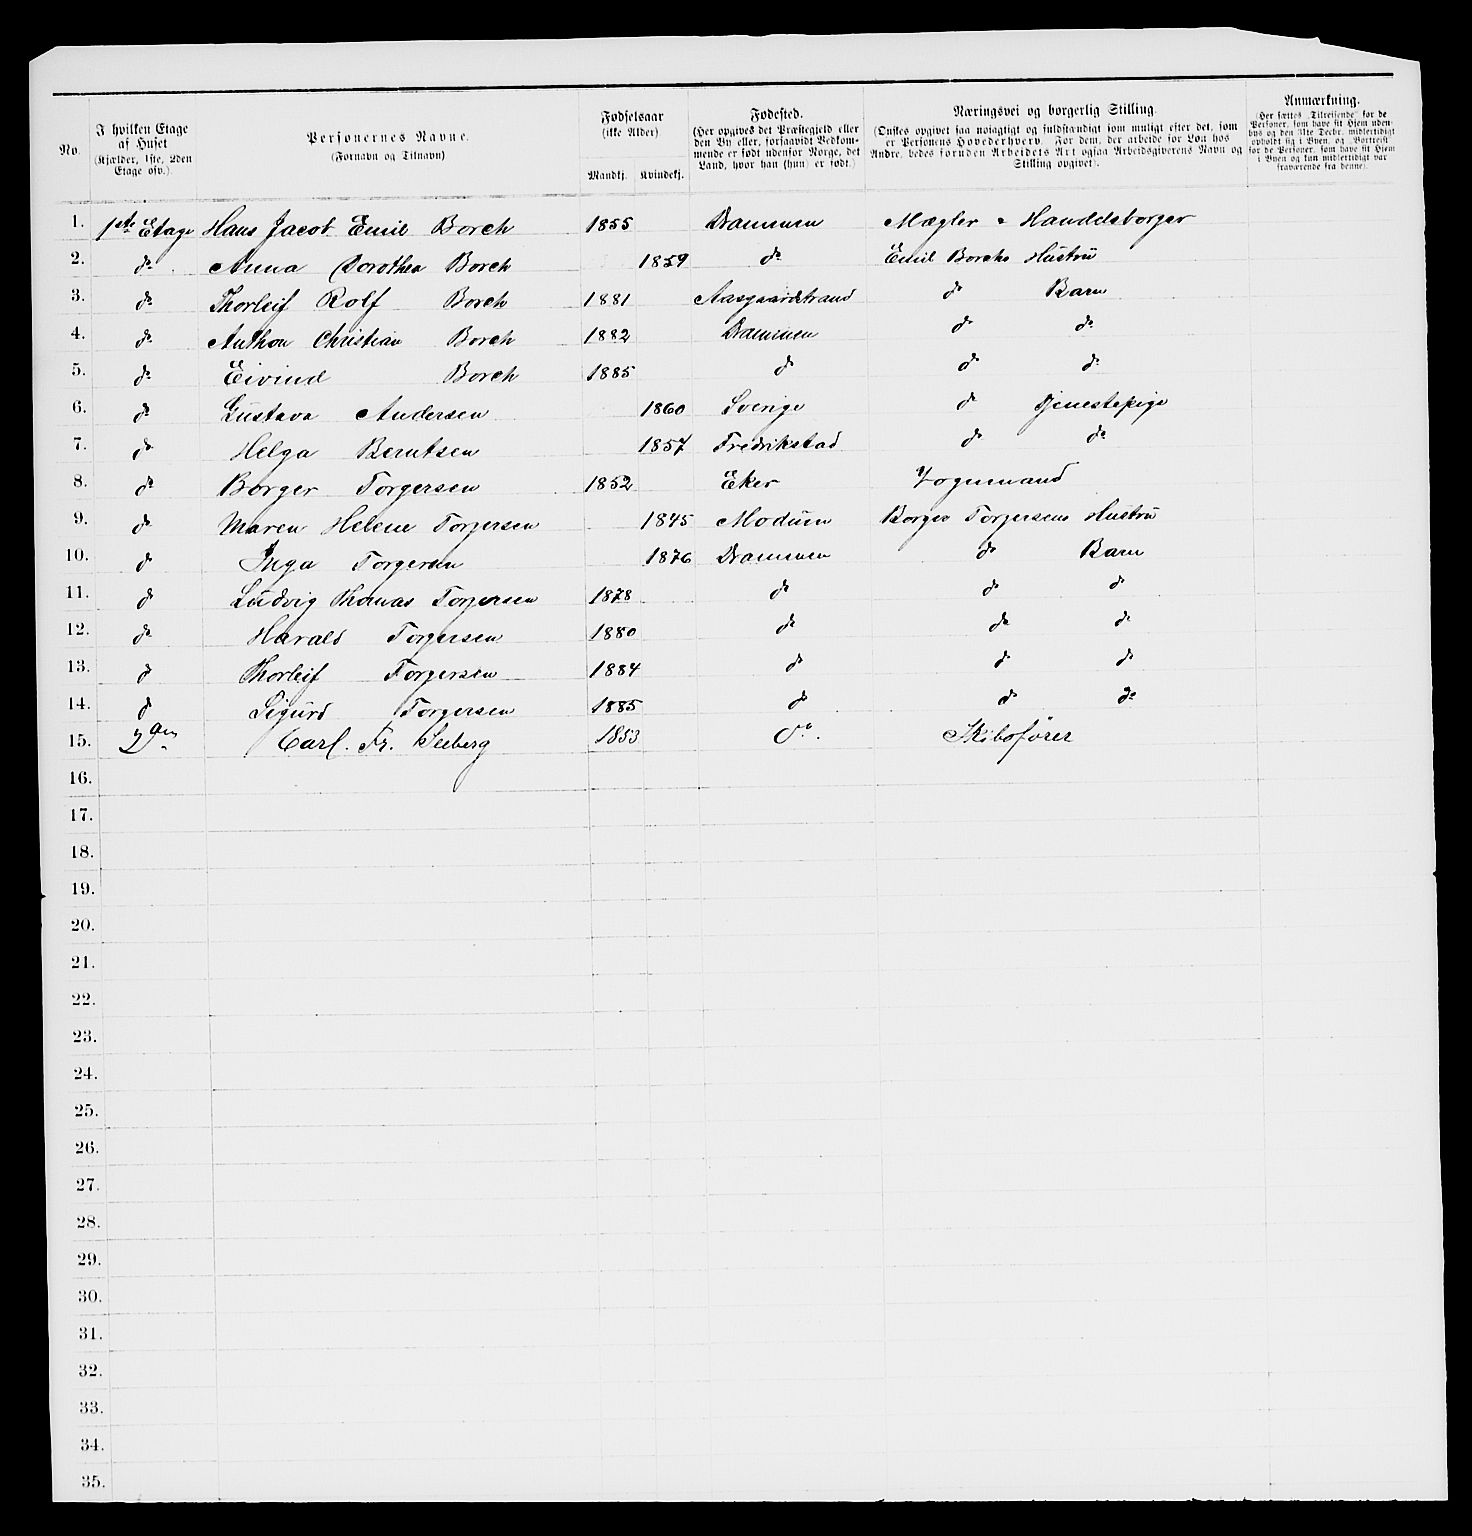 No.
I hvilken Etage af Huset (Kjælder, 1ste, 2den Etage osv.).
Personernes Navne. (Fornavn og Tilnavn)
Fødselsaar (ikke Alder)
Mandkj. Kvindekj.
Fødested. (Her opgives det Præstegjeld eller den By eller, forsaavidt Vedkommende er født udenfor Norge, det Land, hvor han (hun) er født.)
Næringsvei og borgerlig Stilling. (Ønskes opgivet saa nøiagtigt og fuldstændigt som muligt efter det, som er Personens Hovederhverv. For dem, der arbeide for Løn hos Andre, bedes foruden Arbeidets Art ogsaa Arbeidsgiverens Navn og Stilling opgivet).
Anmærkning. (Her sættes „Tilreisende“ for de Personer, som have sit Hjem udenbys og den 31te Decbr. midlertidigt opholdt sig i Byen, og „Bortreist“ for de Personer, som have sit Hjem i Byen og kun midlertidigt var fraværende fra denne).
1. 1ste Etage Hans Jacob Emil Borch 1855 Drammen Mægler & Handelsborger
2. do Anna Dorothea Borch 1859 do Emil Borchs Hustru
3. do Thorleif Rolf Borch 1881 Aasgaardstrand do Barn
4. do Anthon Christian Borch 1882 Drammen do do
5. do Eivind Borch 1885 do do do
6. do Gustava Andersen 1860 Sverige do Tjenestepige
7. do Helga Berntsen 1857 Fredrikstad do do
8. do Borger Torgersen 1852 Eker Vognmand
9. do Maren Helene Torgersen 1845 Modum Borger Torgersens Hustru
10. do Inga Torgersen 1876 Drammen do Barn
11. do Ludvig Thomas Torgersen 1878 do do do
12. do Harald Torgersen 1880 do do do
13. do Thorleif Torgersen 1884 do do do
14. do Sigurd Torgersen 1885 do do do
15. 2den Carl. Fr. Seeberg 1853 do. Skibsfører
16.
17.
18.
19.
20.
21.
22.
23.
24.
25.
26.
27.
28.
29.
30.
31.
32.
33.
34.
35.